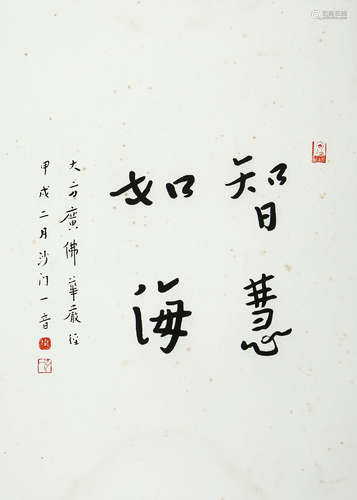 智慧
如海
大方廣佛華嚴經
甲戌二月沙门一音